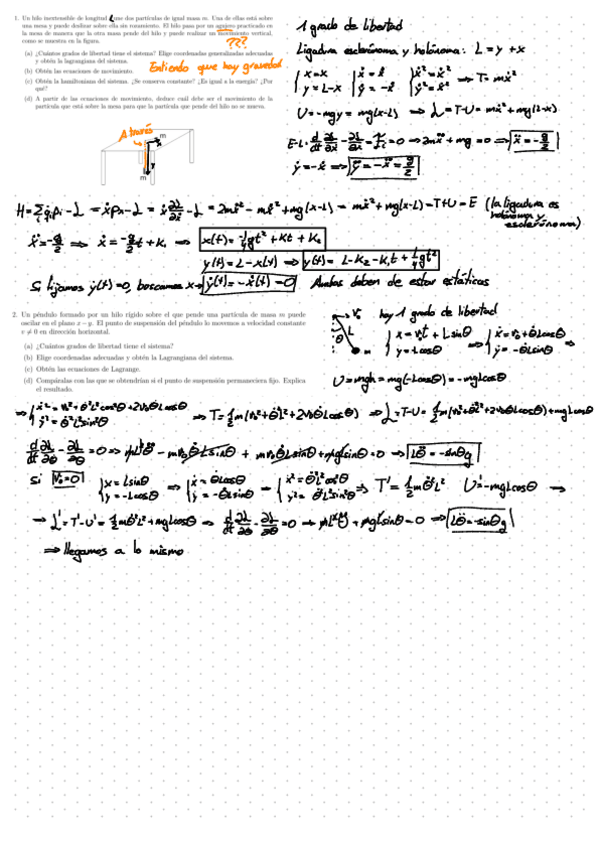 1. Un hilo inextensible de longitud L une dos partículas de igual masa m. Una de ellas está sobre
una mesa y puede deslizar sobre ella sin rozamiento. El hilo pasa por un agujero practicado en
la mesa de manera que la otra masa pende del hilo y puede realizar un movimiento vertical,
como se muestra en la figura.
???
(a) ¿Cuántos grados de libertad tiene el sistema? Elige coordenadas generalizadas adecuadas
y obtén la lagrangiana del sistema.
Entiendo que hay gravedad
(b) Obtén las ecuaciones de movimiento.
(c) Obtén la hamiltoniana del sistema. ¿Se conserva constante? ¿Es igual a la energía? ¿Por
qué?
(d) A partir de las ecuaciones de movimiento, deduce cuál debe ser el movimiento de la
partícula que está sobre la mesa para que la partícula que pende del hilo no se mueva.
A través
m
x
y
m
1 grado de libertad
Ligadura esclerónoma y holónoma: L = y + x
{x=x y=L-x {ẋ=ẋ ẏ=-ẋ {ẋ²=ẋ² ẏ²=ẋ² ⇒ T=mẋ²
U=-mgy = mg(x-L) ⇒ L=T-U= mẋ²+mg(L-x)
E-L: d/dt ∂L/∂ẋ - ∂L/∂x = 0 ⇒ 2mẍ+mg=0 ⇒ ẍ=-g/2
ẏ=-ẋ ⇒ ÿ=-ẍ=g/2
H=∑q̇ᵢpᵢ-L = ẋpₓ-L = ẋ ∂L/∂ẋ - L = 2mẋ²-mẋ²+mg(x-L) = mẋ²+mg(x-L)=T+U=E (la ligadura es
holónoma y
esclerónoma)
ẍ=-g/2 ⇒ ẋ=-g/2 t+K₁ ⇒ x(t)=-1/4 gt²+Kt+K₂
y(t)=L-x(t) ⇒ y(t)=L-K₂-K₁t+1/4 gt²
Si fijamos ẏ(t)=0, buscamos x→ ẏ(t)=-ẋ(t)=0 Ambas deben de estar estáticas
2. Un péndulo formado por un hilo rígido sobre el que pende una partícula de masa m puede
oscilar en el plano x − y. El punto de suspensión del péndulo lo movemos a velocidad constante
v ≠ 0 en dirección horizontal.
(a) ¿Cuántos grados de libertad tiene el sistema?
(b) Elige coordenadas adecuadas y obtén la Lagrangiana del sistema.
(c) Obtén las ecuaciones de Lagrange.
(d) Compáralas con las que se obtendrían si el punto de suspensión permaneciera fijo. Explica
el resultado.
V₀
L
θ
m
hay 1 grado de libertad
{x=v₀t+Lsinθ y=-Lcosθ ⇒ {ẋ=v₀+θ̇Lcosθ ẏ=θ̇Lsinθ ⇒
U=mgh=mg(-Lcosθ)=-mgLcosθ
⇒ {ẋ²=v₀²+θ̇²L²cos²θ+2v₀θ̇Lcosθ ẏ²=θ̇²L²sin²θ ⇒ T=1/2 m(v₀²+θ̇²L²+2v₀θ̇Lcosθ) ⇒ L=T-U=1/2 m(v₀²+θ̇²L²+2v₀θ̇Lcosθ)+mgLcosθ
d/dt ∂L/∂θ̇ - ∂L/∂θ = 0 ⇒ mL²θ̈ - mv₀θ̇Lsinθ + mv₀θ̇Lsinθ + mgLsinθ = 0 ⇒ Lθ̈=-sinθg
si V₀=0 {x=Lsinθ y=-Lcosθ ⇒ {ẋ=θ̇Lcosθ ẏ=θ̇Lsinθ → {ẋ²=θ̇²L²cos²θ ẏ²=θ̇²L²sin²θ ⇒ T'=1/2 mθ̇²L² U'=-mgLcosθ →
→ L'=T'-U'=1/2 mθ̇²L²+mgLcosθ ⇒ d/dt ∂L/∂θ̇ - ∂L/∂θ = 0 → mL²θ̈+mgLsinθ=0 ⇒ Lθ̈=-sinθg
⇒ llegamos a lo mismo